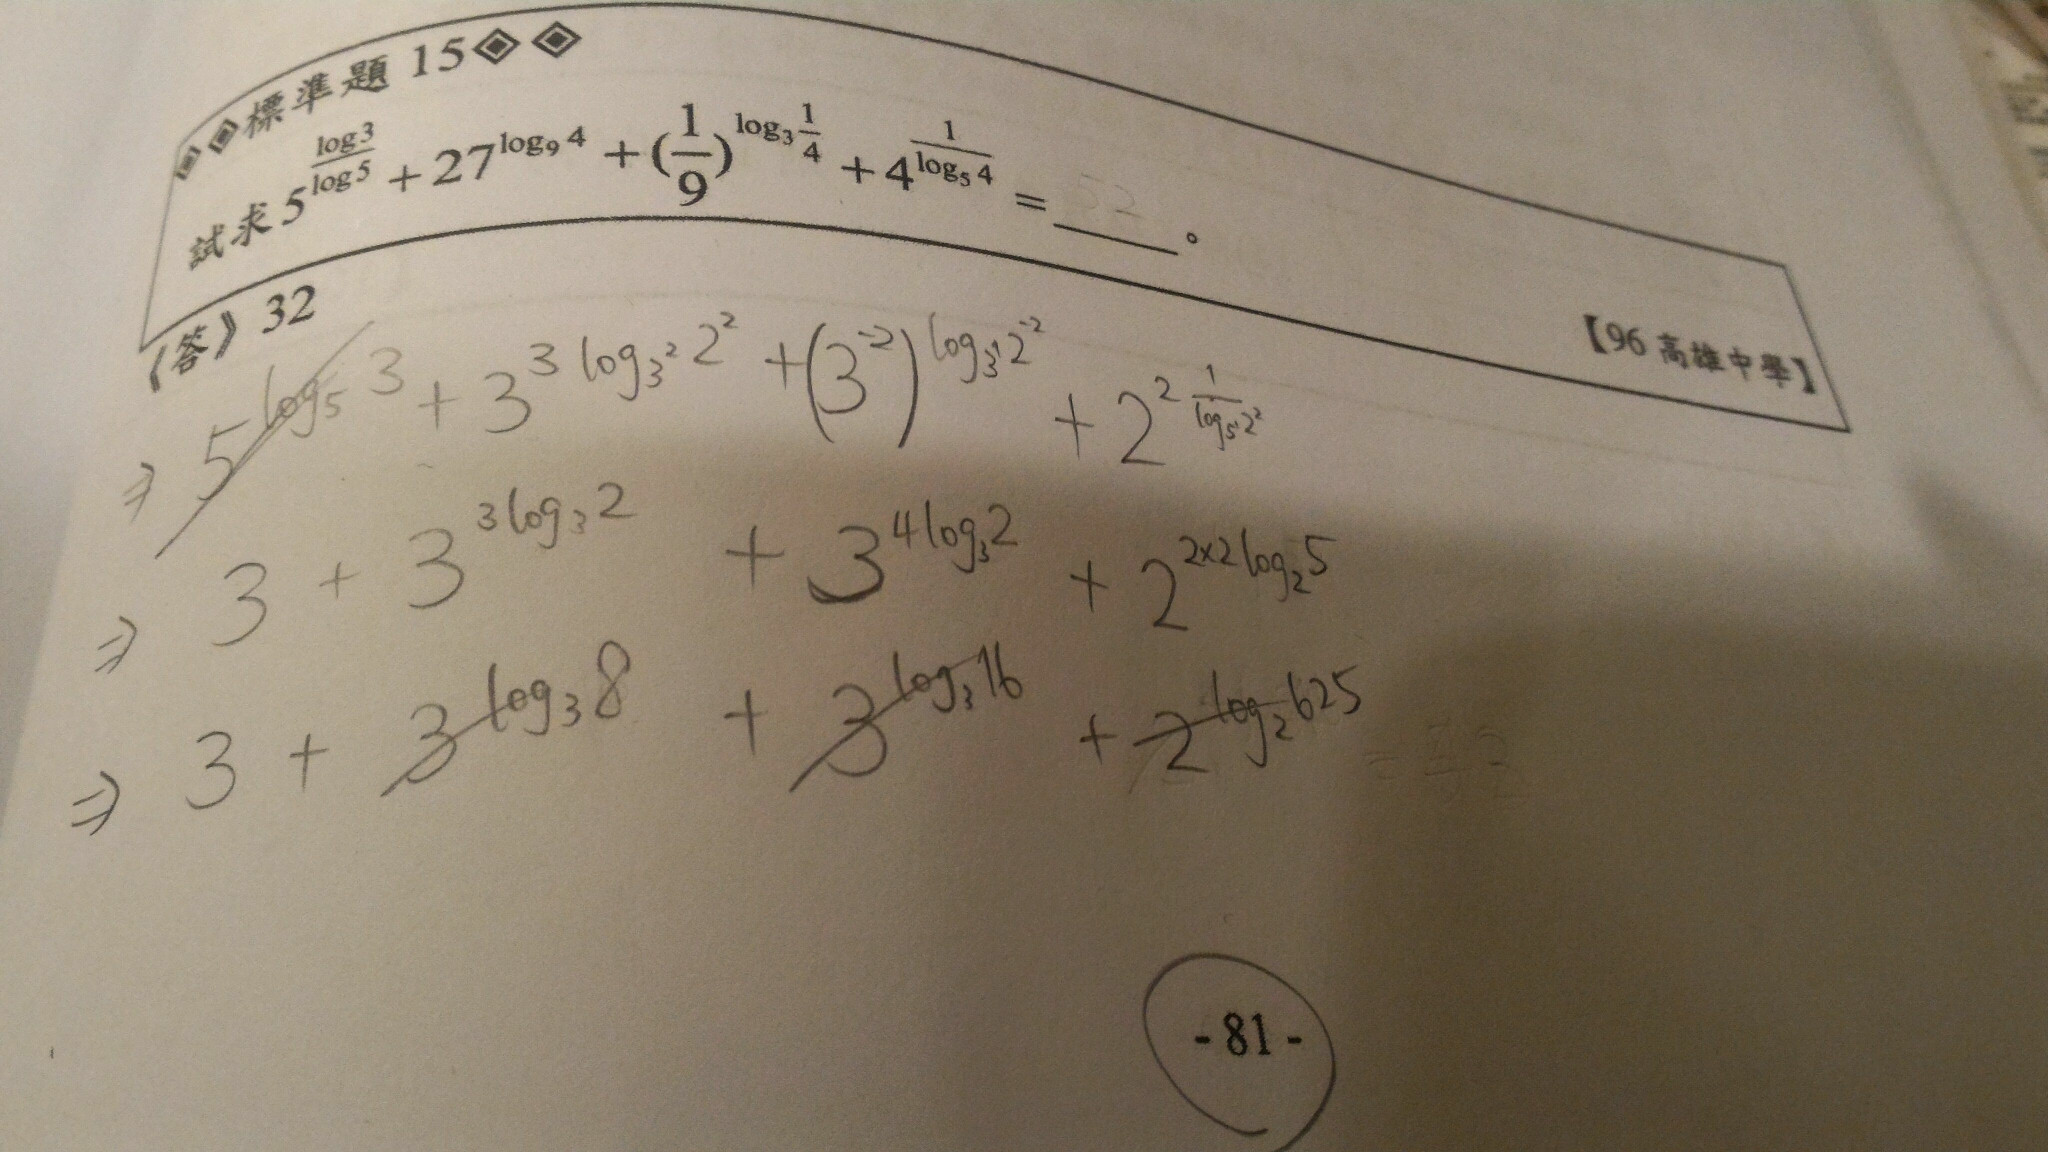 標準題 15
試求 5^{\frac{log3}{log5}} + 27^{log₉4} + (\frac{1}{9})^{log₃\frac{1}{4}} + 4^{\frac{1}{log₅4}} = 52 。
【96 高雄中學】
《答》32
⇒ 5^{log₅3} + 3^{3 log_{3²}2²} + (3^{-2})^{log_{3¹}2^{-2}} + 2^{2\frac{1}{log_{5¹}2²}}
⇒ 3 + 3^{3log₃2} + 3^{4log₃2} + 2^{2×2log₂5}
⇒ 3 + 3^{log₃8} + 3^{log₃16} + 2^{log₂625} = 52
- 81 -